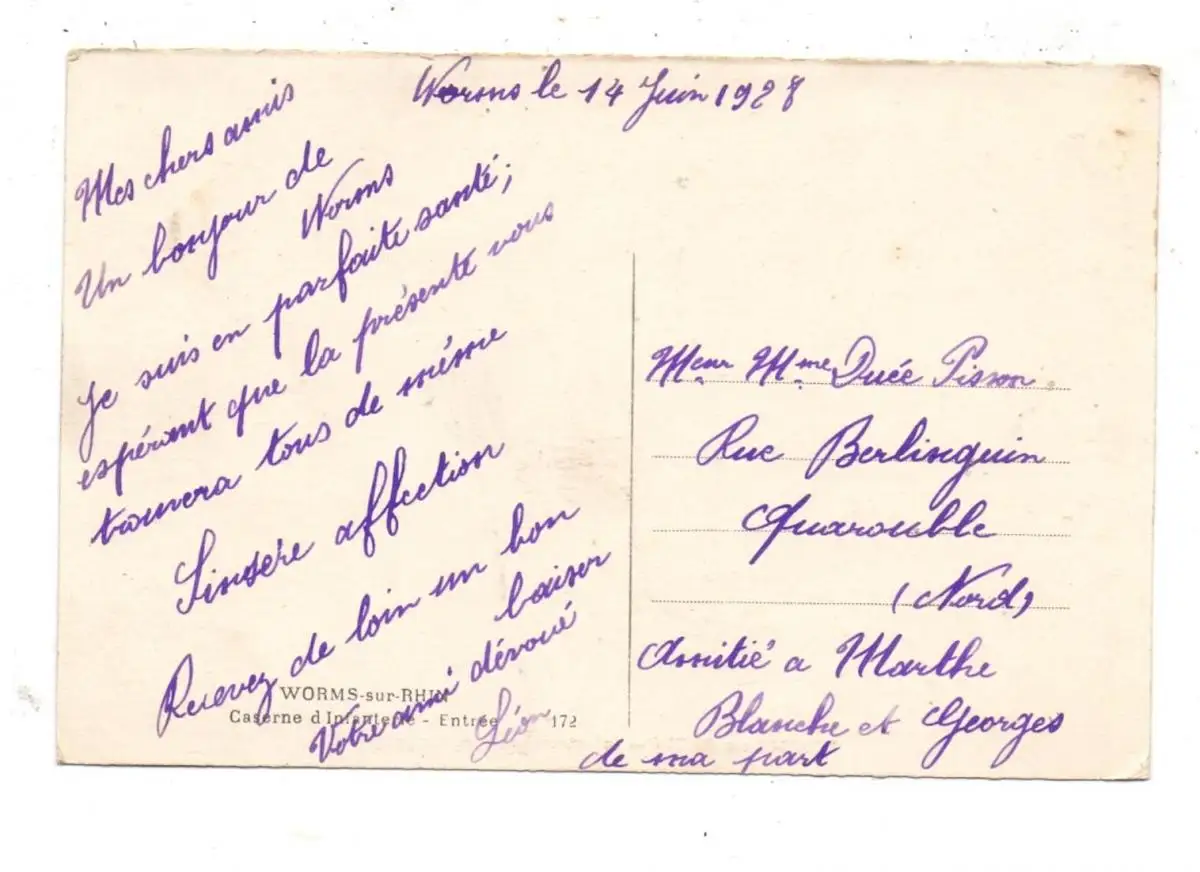 Worms le 14 Juin 1928
Mes chers amis
Un bonjour de
Worms
Je suis en parfaite santé;
espérant que la présente vous
trouvera tous de même
Sincère affection
Recevez de loin un bon
baiser
Votre ami dévoué
Léon
WORMS-sur-RHIN
Caserne d'Infanterie - Entrée 172
Mr Mme Duée Pisson
Rue Berlinguin
Quarouble
(Nord)
Amitié a Marthe
Blanche et Georges
de ma part